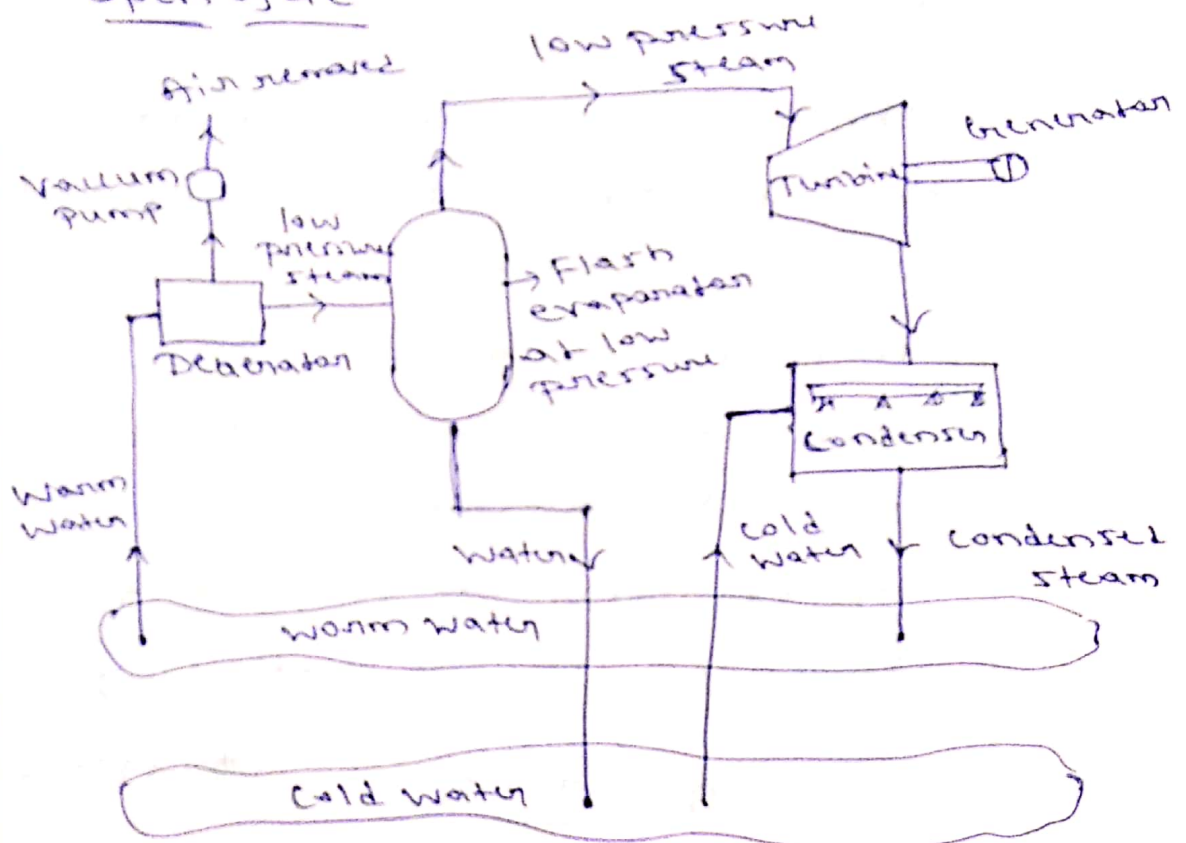 open cycle
low pressure
steam
Air removed
Generator
Vaccum
pump
Turbine
low
pressure
steam
Flash
evaporator
at low
pressure
Deaerator
Condenser
Warm
water
Water
cold
water
condensed
steam
Warm water
Cold water